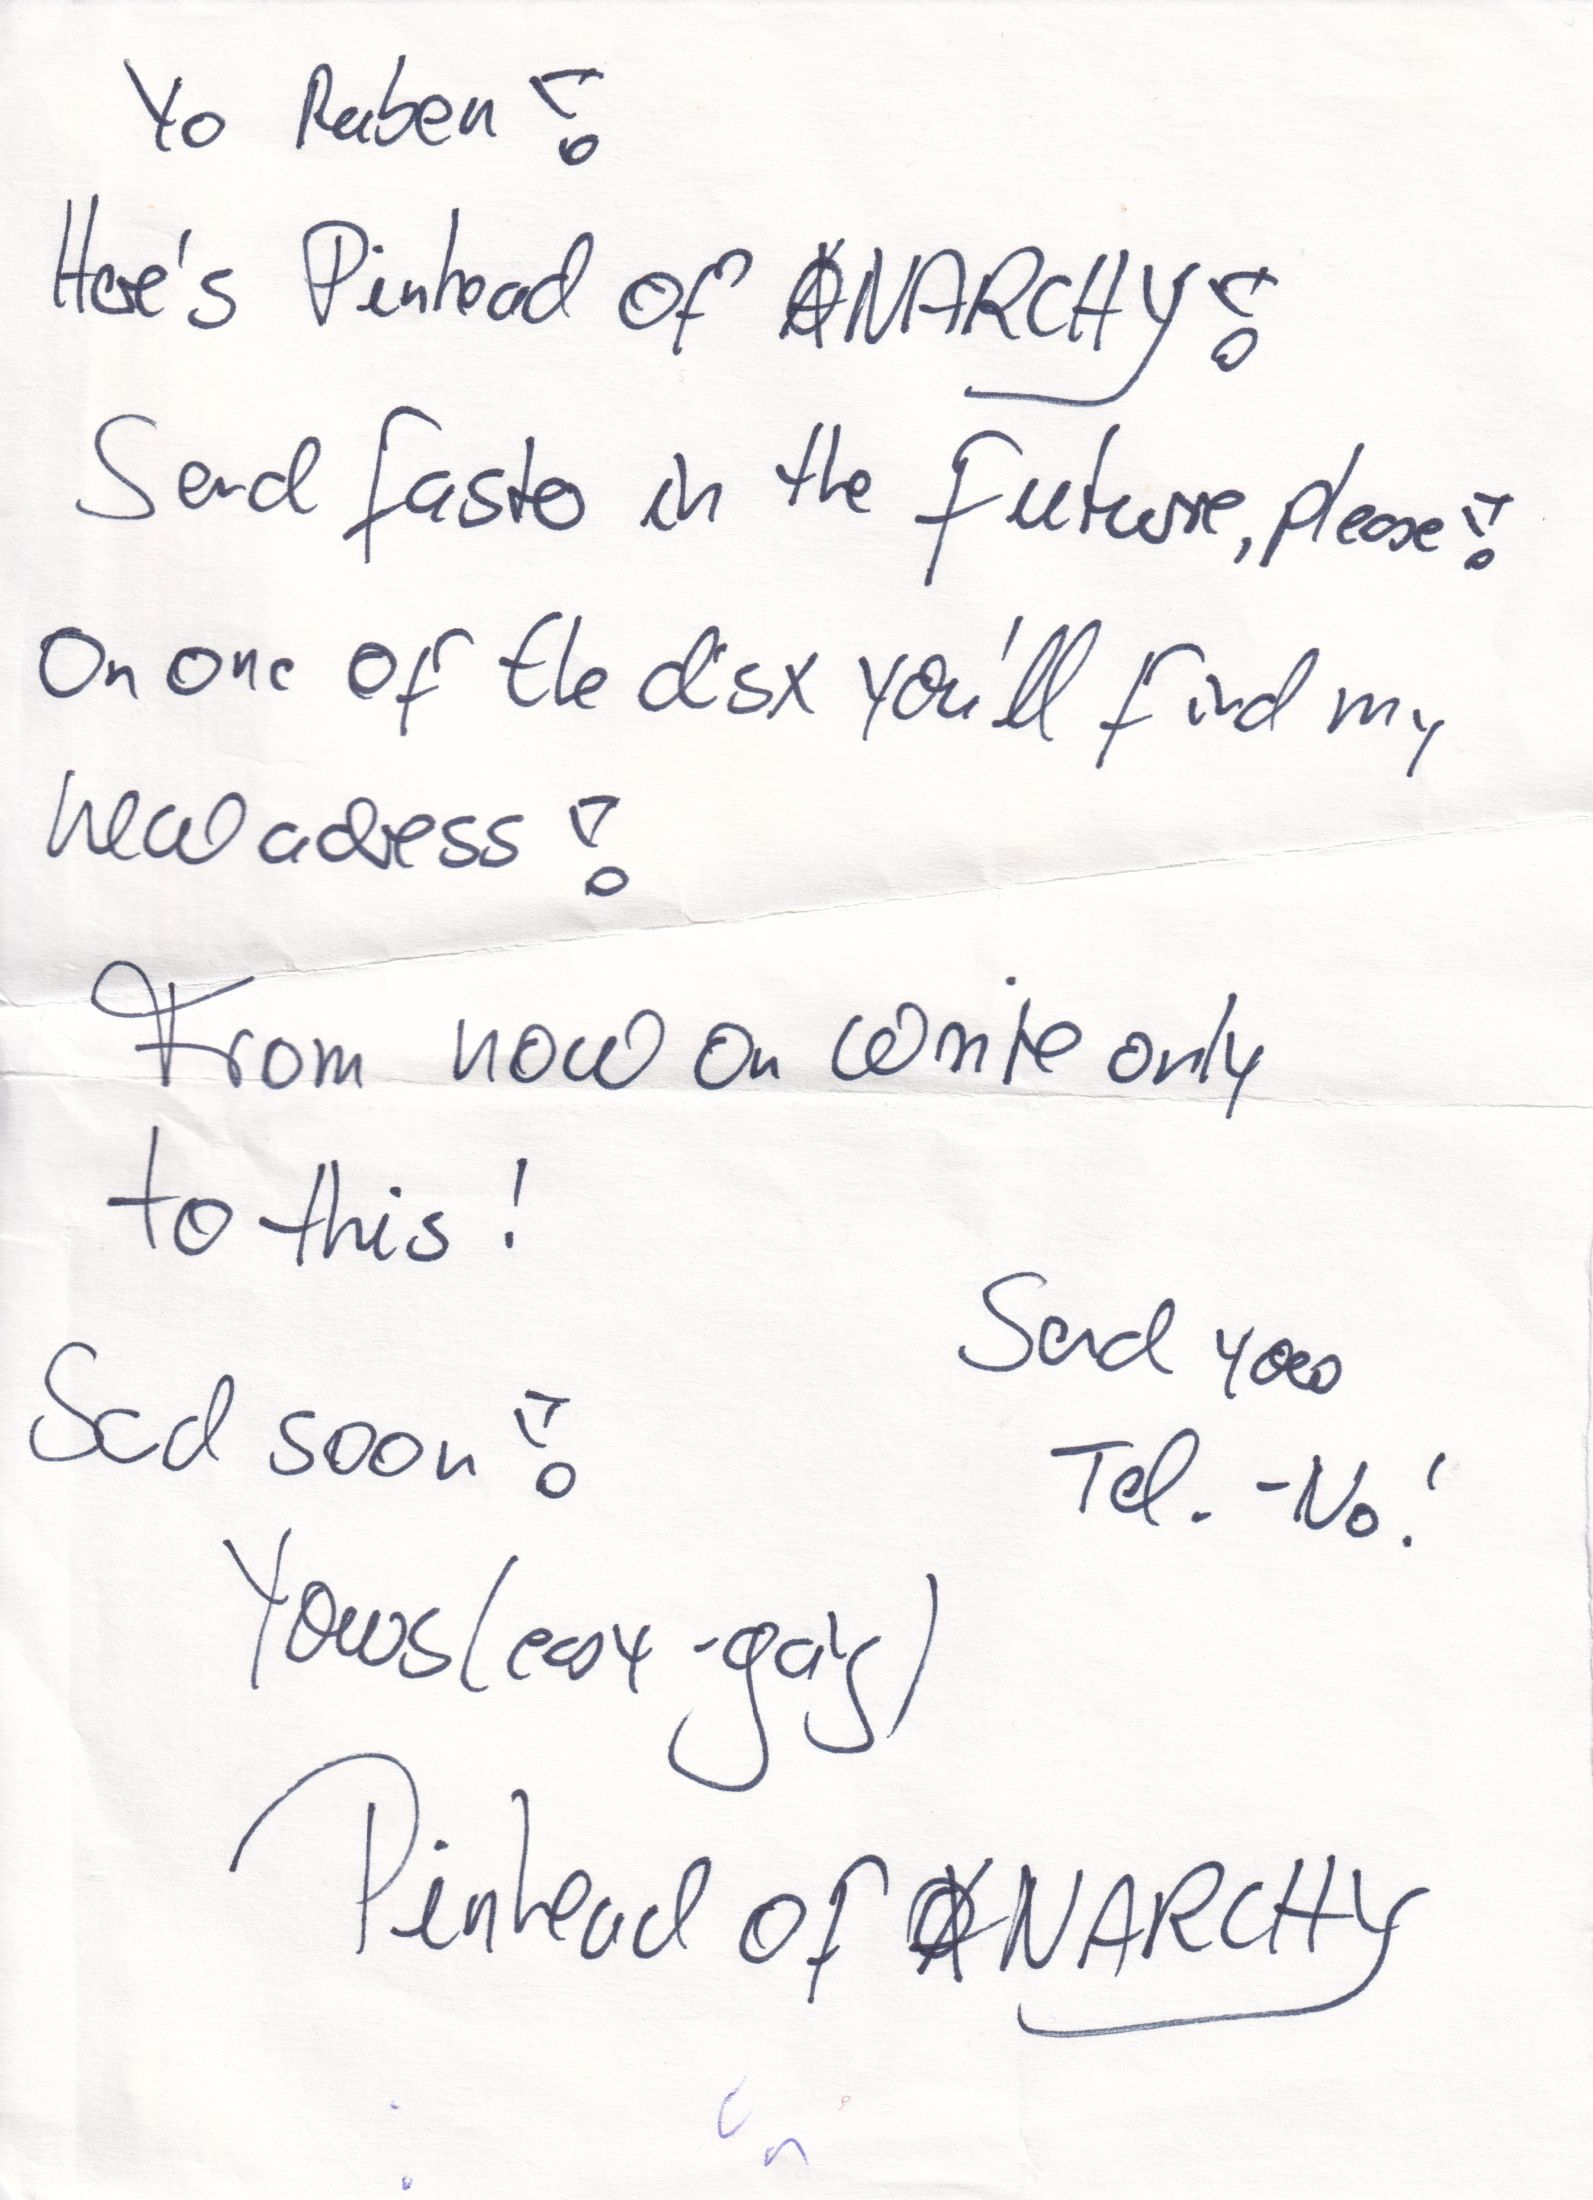 Yo Ruben!
Here's Pinhead of ANARCHY!
Send faster in the future, please!
On one of the disx you'll find my
new adress!
From now on write only
to this!
Send your
Tel. -No.!
Send soon!
Yours (easy-going)
Pinhead of ANARCHY